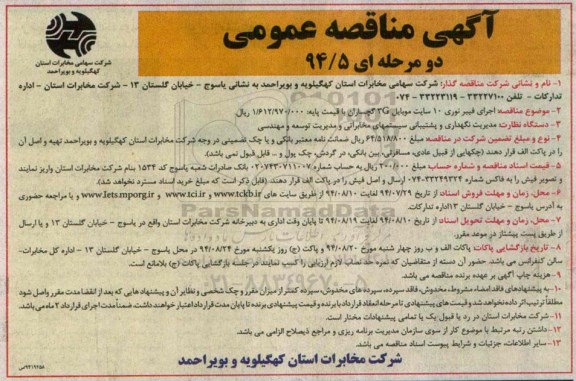 آگهی مناقصه عمومی
دو مرحله ای ۹۴/۵
شرکت سهامی مخابرات استان
کهگیلویه و بویراحمد
۱- نام و نشانی شرکت مناقصه گذار: شرکت سهامی مخابرات استان کهگیلویه و بویراحمد به نشانی یاسوج - خیابان گلستان ۱۳ - شرکت مخابرات استان - اداره
تدارکات - تلفن ۳۳۲۲۷۱۰۰ - ۳۳۲۲۳۱۱۹ - ۰۷۴
۲- موضوع مناقصه: اجرای فیبر نوری ۱۰ سایت موبایل 3G گچساران با قیمت پایه: ۱/۶۱۲/۹۷۰/۰۰۰ ریال
۳- دستگاه نظارت: مدیریت نگهداری و پشتیبانی سیستمهای مخابراتی و مدیریت توسعه و مهندسی
۴- نوع و مبلغ تضمین شرکت در مناقصه: مبلغ ۶۴/۵۱۸/۸۰۰ ریال ضمانت نامه معتبر بانکی و یا چک تضمینی در وجه شرکت مخابرات استان کهگیلویه و بویراحمد تهیه و اصل آن
را در پاکت الف قرار دهند (چکهایی از قبیل عادی، مسافرتی، بین بانکی، در گردش، چک پول و - قابل قبول نمی باشد).
۵- قیمت اسناد مناقصه و شماره حساب: مبلغ ۲۰۰/۰۰۰ ریال به حساب شماره بانک صادرات شعبه یاسوج کد ۱۵۳۴ بنام شرکت مخابرات استان واریز نمایند
و تصویر فیش را به فاکس شماره ۳۳۲۲۴۹۳۲۴-۰۷۴ ارسال و اصل فیش را در پاکت الف قرار دهند. (قابل ذکر است که مبلغ خرید اسناد مسترد نخواهد شد).
۶- محل، زمان و مهلت فروش اسناد: از تاریخ ۹۴/۰۷/۲۹ لغایت ۹۴/۰۸/۱۰ از طریق سایت های www.tckb.ir و www.tci.ir و www.Iets.mporg.ir و یا مراجعه حضوری
به آدرس یاسوج - خیابان گلستان ۱۳ اداره تدارکات.
۷- محل، زمان و مهلت تحویل اسناد: از تاریخ ۹۴/۰۸/۱۰ لغایت ۹۴/۰۸/۱۹ تا پایان وقت اداری به دبیرخانه شرکت مخابرات استان واقع در یاسوج - خیابان گلستان ۱۳ و یا ارسال
از طریق پست پیشتاز در موعد مقرر.
۸- تاریخ بازگشایی پاکات: پاکات الف و ب روز چهار شنبه مورخ ۹۴/۰۸/۲۰ و پاکت (ج) روز یکشنبه مورخ ۹۴/۰۸/۲۴ در محل یاسوج - خیابان گلستان ۱۳ - اداره کل مخابرات-
سالن کنفرانس می باشد. حضور آن دسته از متقاضیان که نمره حد نصاب لازم ارزیابی را کسب نمایند در جلسه بازگشایی پاکات (ج) بلامانع است.
۹- هزینه چاپ آگهی بر عهده برنده مناقصه می باشد.
۱۰- به پیشنهادهای فاقد امضاء، مشروط، مخدوش، فاقد سپرده، سپرده های مخدوش، سپرده کمتر از میزان مقرر و چک شخصی و نظایر آن و پیشنهادهایی که بعد از انقضا مدت مقرر واصل شود
مطلقاً ترتیب اثر داده نخواهد شد و قیمت های پیشنهادی تا مرحله انعقاد قرارداد با برنده و قیمت پیشنهادی برنده تا پایان مدت قرارداد اعتبار خواهند داشت. ضمناً مدت اجرای قرارداد ۲ ماه می باشد.
۱۱- شرکت مخابرات استان در رد یا قبول یک یا تمامی پیشنهادات مختار است.
۱۲- داشتن رتبه مرتبط با موضوع کار از سوی سازمان مدیریت برنامه ریزی و مراجع ذیصلاح الزامی می باشد.
۱۳- سایر اطلاعات، جزئیات و شرایط پیوست اسناد مناقصه می باشد.
شرکت مخابرات استان کهگیلویه و بویراحمد